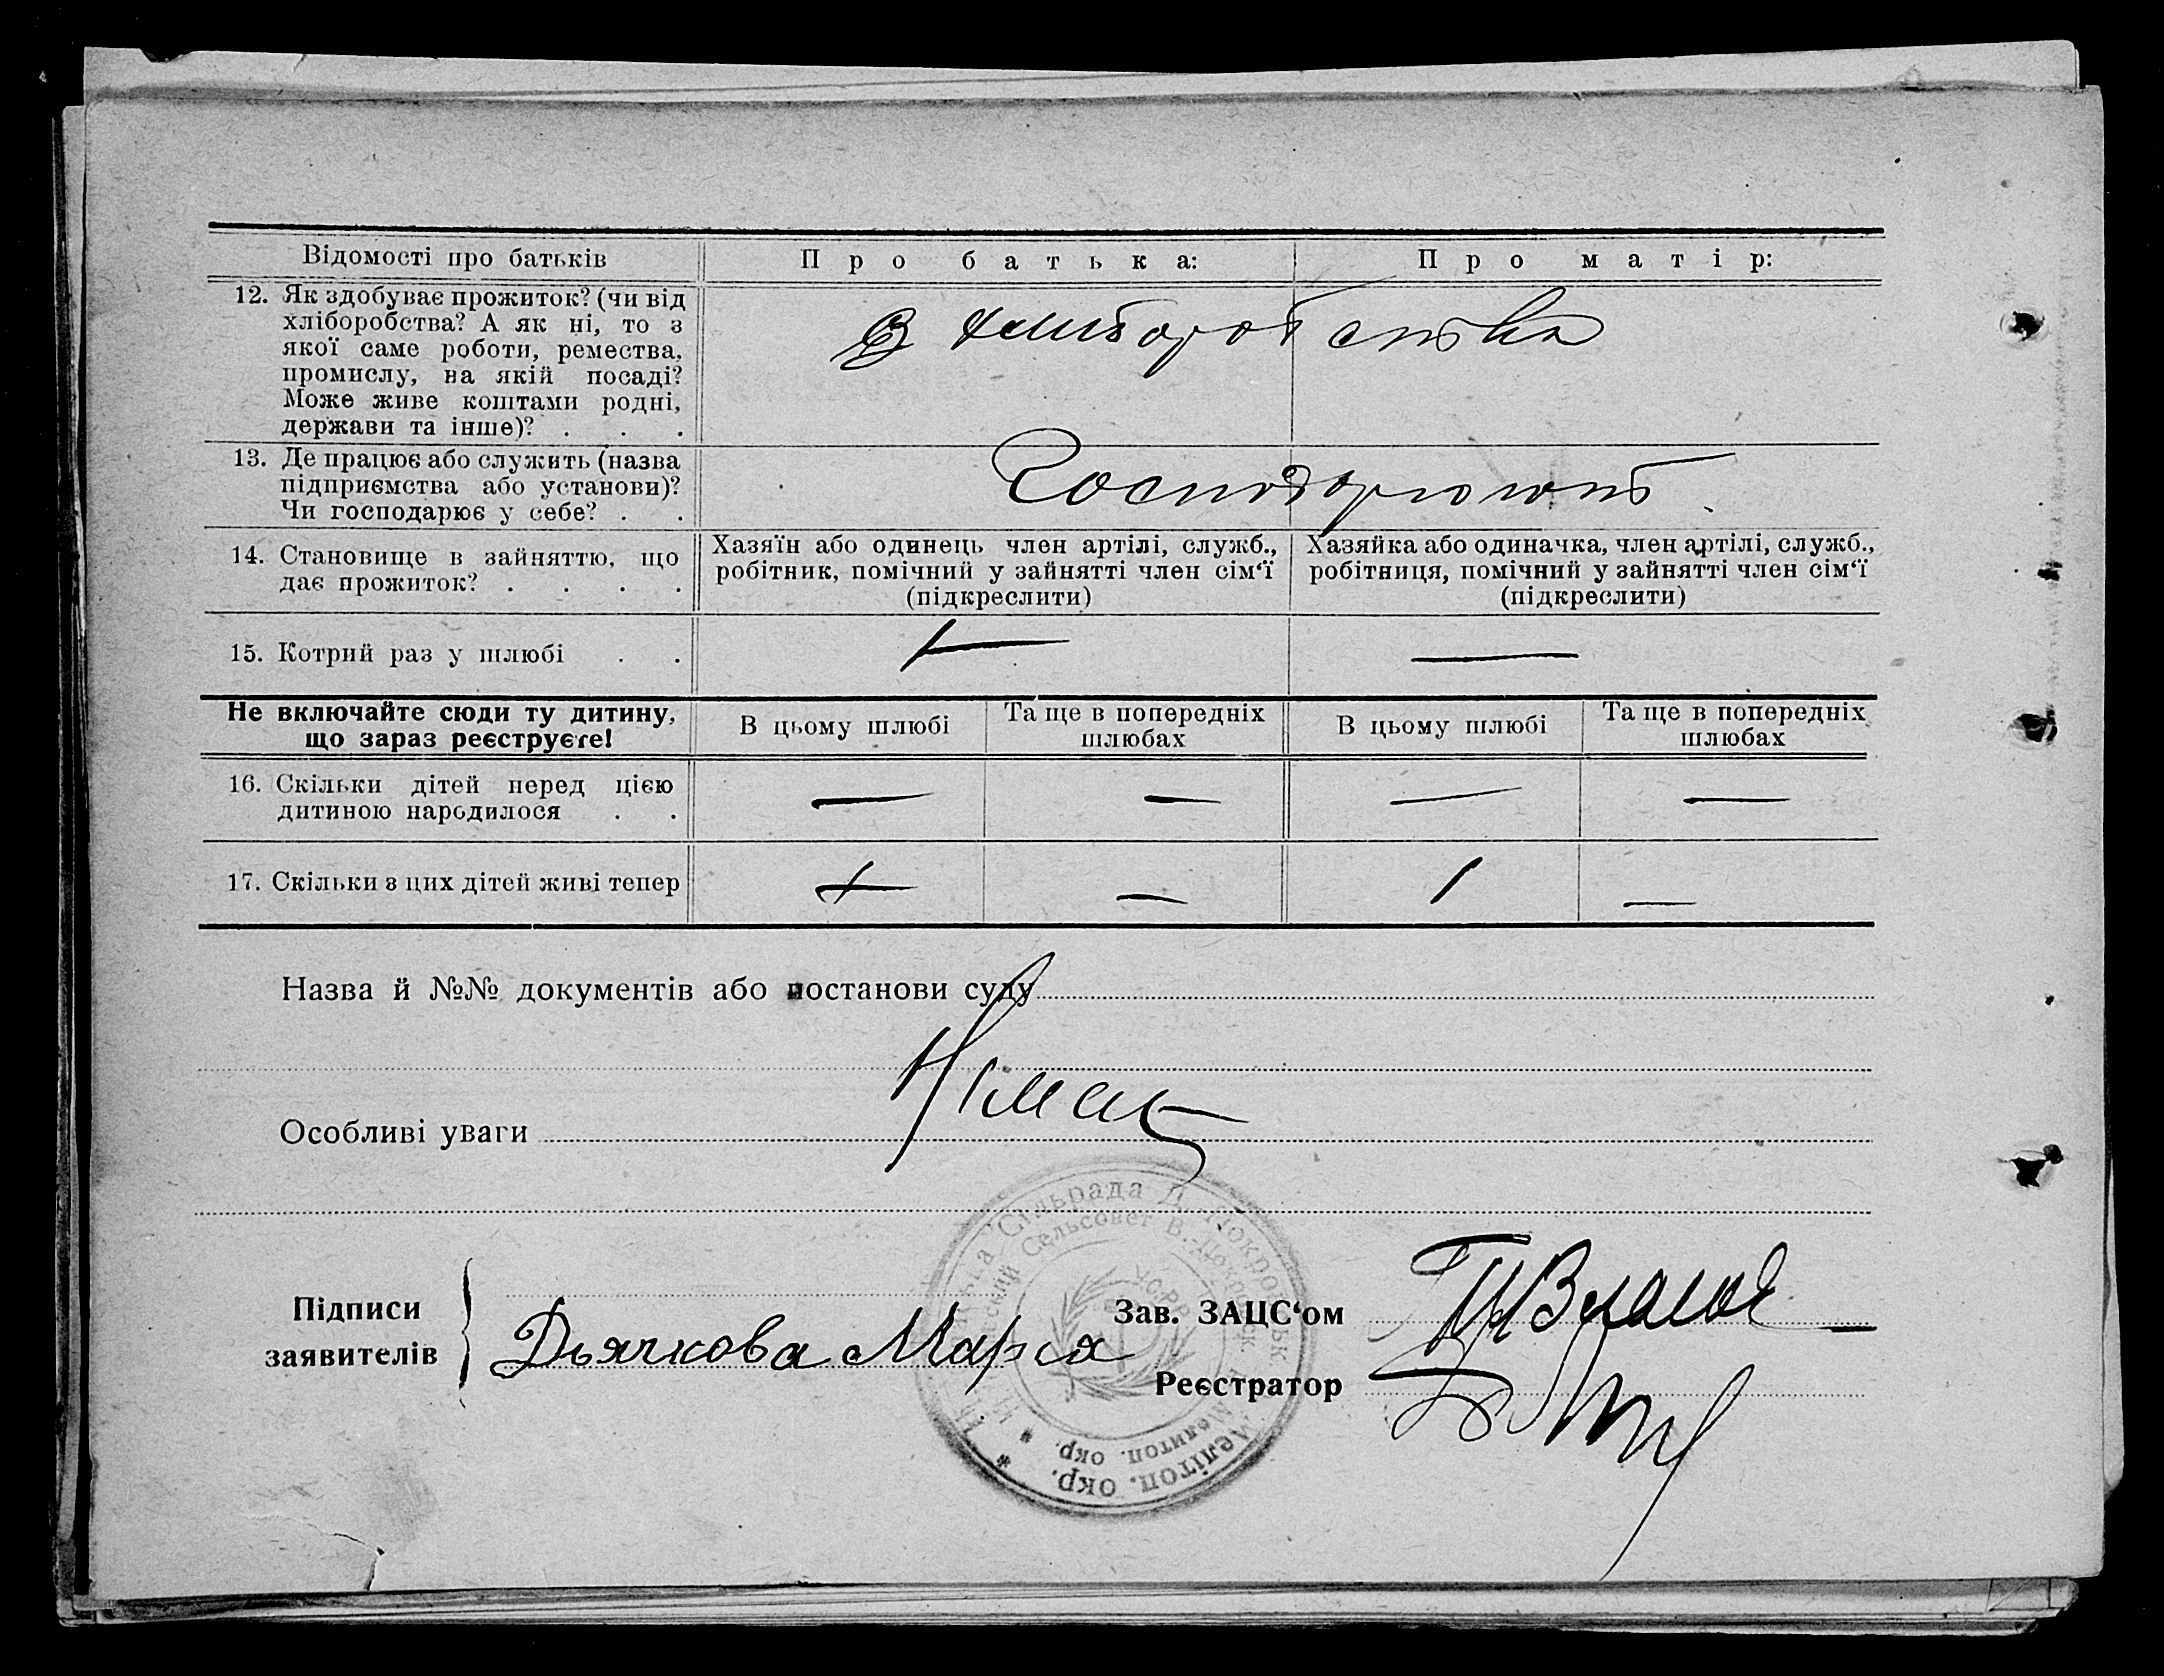 Відомості про батьків
Про батька:
Про матір:
12. Як здобуває прожиток? (чи від
хліборобства? А як ні, то з
якої саме роботи, ремества,
промислу, на якій посаді?
Може живе коштами родні,
держави та інше)? . . .
З хлиборобства
13. Де працює або служить (назва
підприємства або установи)?
Чи господарює у себе? . .
Господорюють
14. Становище в зайняттю, що
дає прожиток? . . . .
Хазяїн або одинець член артілі, служб.,
робітник, помічний у зайнятті член сім‘ї
(підкреслити)
Хазяйка або одиначка, член артілі, служб.,
робітниця, помічний у зайнятті член сім‘ї
(підкреслити)
15. Котрий раз у шлюбі . .
—
Не включайте сюди ту дитину,
що зараз реєструєте!
В цьому шлюбі
Та ще в попередніх
шлюбах
В цьому шлюбі
Та ще в попередніх
шлюбах
16. Скільки дітей перед цією
дитиною народилося . .
— — — —
17. Скільки з цих дітей живі тепер
— 1 —
Назва й №№ документів або постанови суду
Німац
Особливі уваги
Підписи
заявителів
Дьячкова Мария
Зав. ЗАЦС‘ом
Реєстратор
Сільрада Д. Покровськ
Мелітоп. окр.
Сельсовет В.-Покровск
Мелитоп. окр.
УСРР